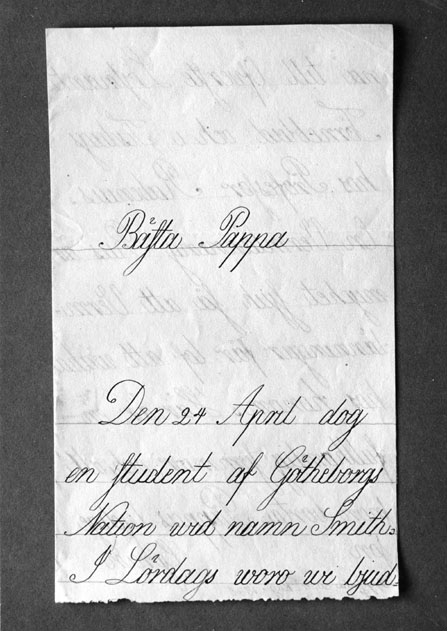 Bästa Pappa
Den 24 April dog
en student af Götheborgs
Nation wid namn Smith.
I Lördags woro wi bjud-